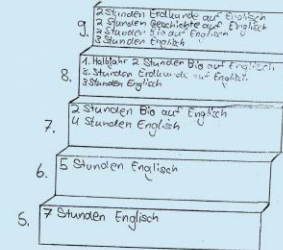 9. 2 Stunden Erdkunde auf Englisch
2 Stunden Geschichte auf Englisch
2 Stunden Bio auf Englisch
3 Stunden Englisch
8. 1. Halbjahr 2 Stunden Bio auf Englisch
2. Stunden Erdkunde auf Englisch
3 Stunden Englisch
7. 2 Stunden Bio auf Englisch
4 Stunden Englisch
6. 5 Stunden Englisch
5. 7 Stunden Englisch